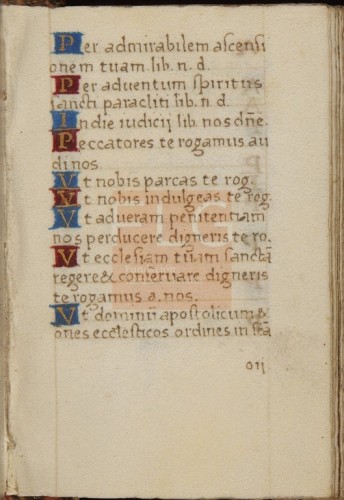 Per admirabilem ascensi
onem tuam. lib. n. d.
Per aduentum spiritus
sancti paracliti lib. n. d.
In die iudicij lib. nos dñe.
Peccatores te rogamus au
di nos.
Vt nobis parcas te rog.
Vt nobis indulgeas te rog.
Vt ad ueram penitentiam
nos perducere digneris te ro.
Vt ecclesiam tuam sanctā
regere & conseruare digneris
te rogamus a. nos.
Vt domnū apostolicum &
oñes ecclesticos ordines in